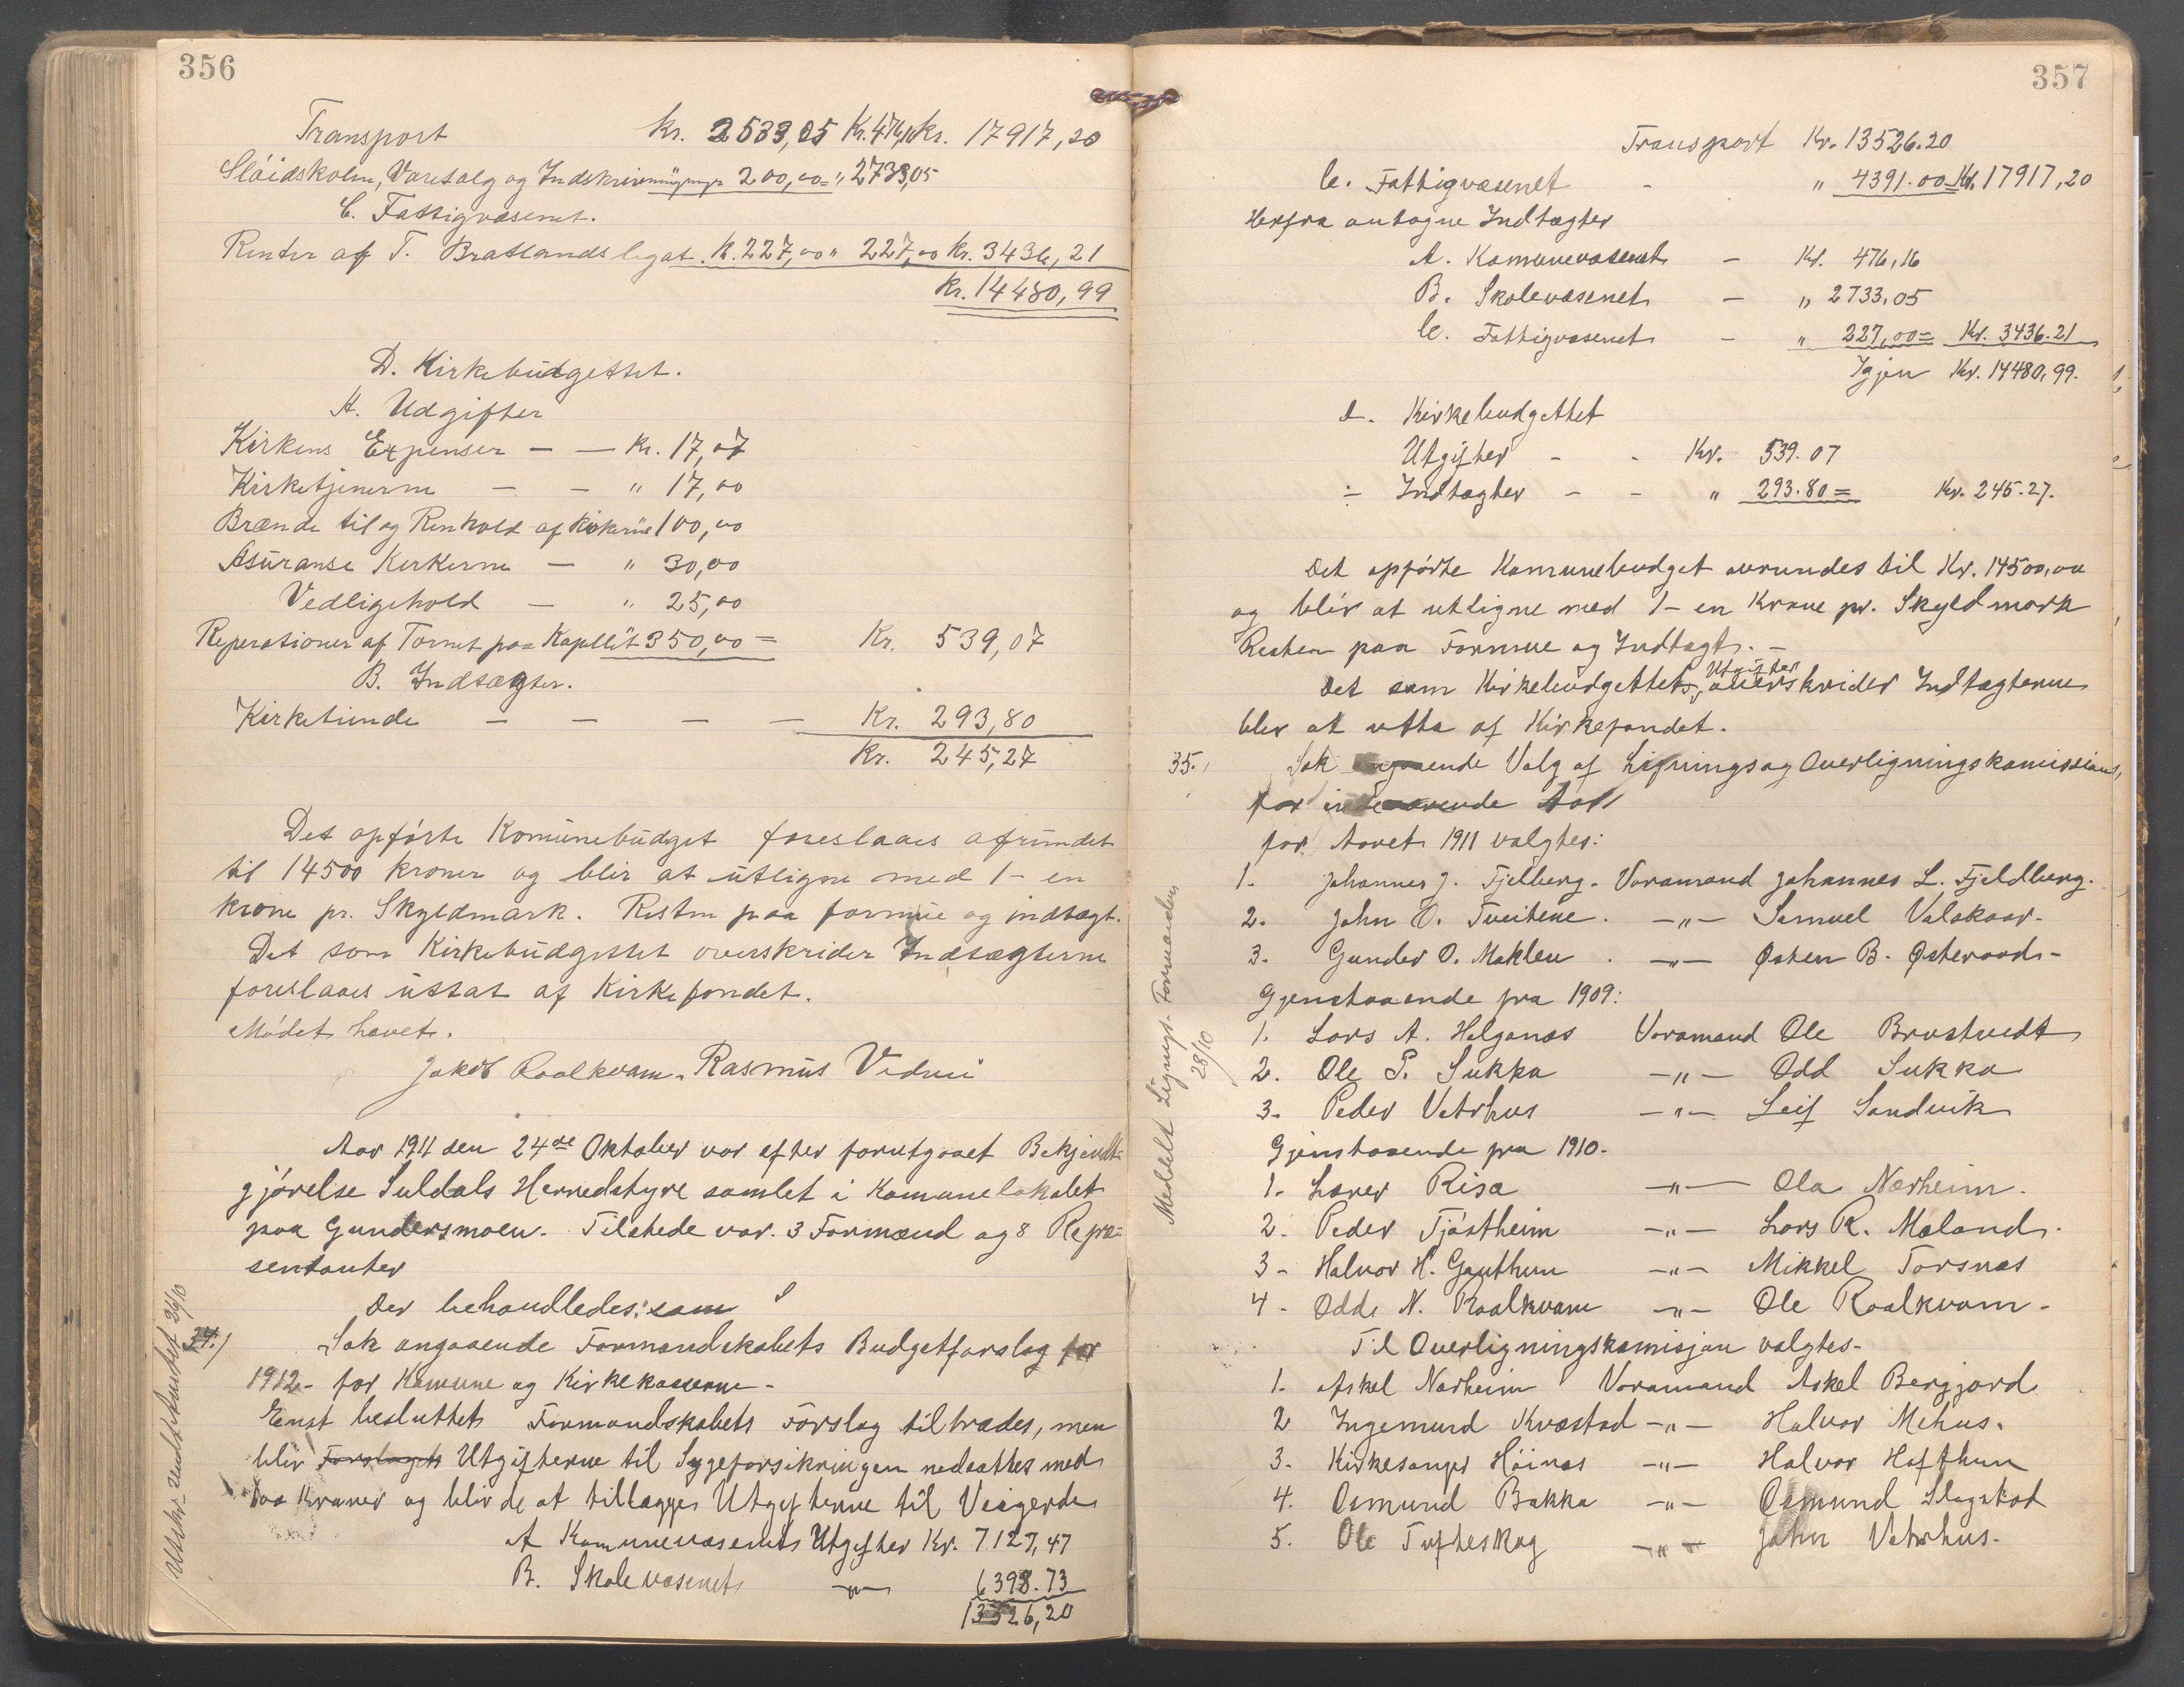 356
Transport Kr. 2533,05 Kr. 476,16 Kr. 17917,20
Slöidskolen, Varesalg og Indskrivningspenge 200,00 = " 2733,05
C. Fattigvæsenet.
Renter af T. Bratlandslegat. K. 227,00 " 227,00 Kr. 3436,21
Kr. 14480,99
D. Kirkebudgettet.
A. Udgifter
Kirkens Expenser — — Kr. 17,07
Kirketjenerne — — " 17,00
Brænde til og Renhold af Kirkerne 100,00
Asüranse Kirkerne — " 30,00
Vedligehold — " 25,00
Reperationer af Tornet paa Kapellet 350,00 = Kr. 539,07
B. Indtægter.
Kirketiende — — — — Kr. 293,80
Kr. 245,27
Det opførte Komünebüdget foreslaaes afrundet
til 14500 kroner og blir at ütligne med 1 - en
krone pr. Skyldmark. Resten paa formue og indtægt.
Det som Kirkebüdgettet overskrider Indtægterne
foreslaaes üttat af Kirkefondet.
Mödet hævet.
Jakob Roalkvam. Rasmus Vedvii
Aar 1911 den 24de Oktober var efter forutgaaet Bekjendt-
gjörelse Suldals Herredstyre samlet i Komunelokalet
paa Gundersmoen. Tilstede var. 3 Formænd og 8 Repræ-
sentanter
Der behandledes: som
34./ Sak angaaende Formandskabets Budgetforslag for
1912 - for Komune og Kirkekasserne -
Enst besluttet Formandskabets Forslag tiltrædes, men
blir Forslaget Utgifterne til Sygeforsikringen nedsættes med
Kroner og blir de at tillægges Utgifterne til Veigerde
A Komunevæsenets Utgifter Kr. 7127,47
B. Skolevæsenet —"— 6398.73
13526,20
26/10
357
Transport Kr. 13526.20
C. Fattigvæsenet - " 4391.00 Kr. 17917,20
Herfra antagne Indtægter
A. Komunevæsenet — Kr. 476,16
B. Skolevæsenet — " 2733,05
C. Fattigvæsenet — " 227,00 = Kr. 3436.21
Igjen Kr. 14480,99.
D. Kirkebudgettet
Utgifter - - Kr. 539.07
÷ Indtægter - - " 293.80 = Kr. 245.27.
Det opførte Komunebudget avrundes til Kr. 14500,00
og blir at utligne med 1 - en Krone pr. Skyldmark
Resten paa Formue og Indtægt. -
Det som Kirkebudgettets, Utgifter overskrider Indtægterne
blir at utta af Kirkefondet.
35./ Sak angaaende Valg af Ligningsog Overligningskomissions,
for indeværende Aar
for Aaret 1911 valgtes:
1. Johannes J. Fjelberg. Varamand Johannes L. Fjeldberg.
2. John O. Tveitene. —"— Samuel Valakaar.
3. Gunder O. Moklev. —"— Østen B. Østeraads -
Gjenstaaende fra 1909:
1. Lars A. Helganæs Varamand Ole Brustvedt
2. Ole P. Sukka —"— Odd Sukka
3. Peder Vetrhus —"— Leif Sandvik
Gjenstaaende fra 1910.
1. Lærer Risa —"— Ola Nærheim.
2. Peder Tjöstheim —"— Lars R. Mæland.
3. Halvor H. Gauthun —"— Mikkel Forsnæs
4. Odd N. Roalkvam —"— Ole Roalkvam -
Til Overligningskomisjon valgtes -
1. Askel Nærheim Varamand Askel Bergjord
2 Ingemund Kvæstad —"— Halvor Mehus.
3. Kirkesanger Höinæs —"— Halvor Hofthun
4. Osmund Bakka —"— Osmund Slagstad
5. Ole Tufteskog —"— John Vetrhus.
Meddelt Lignings. Formanden
28/10